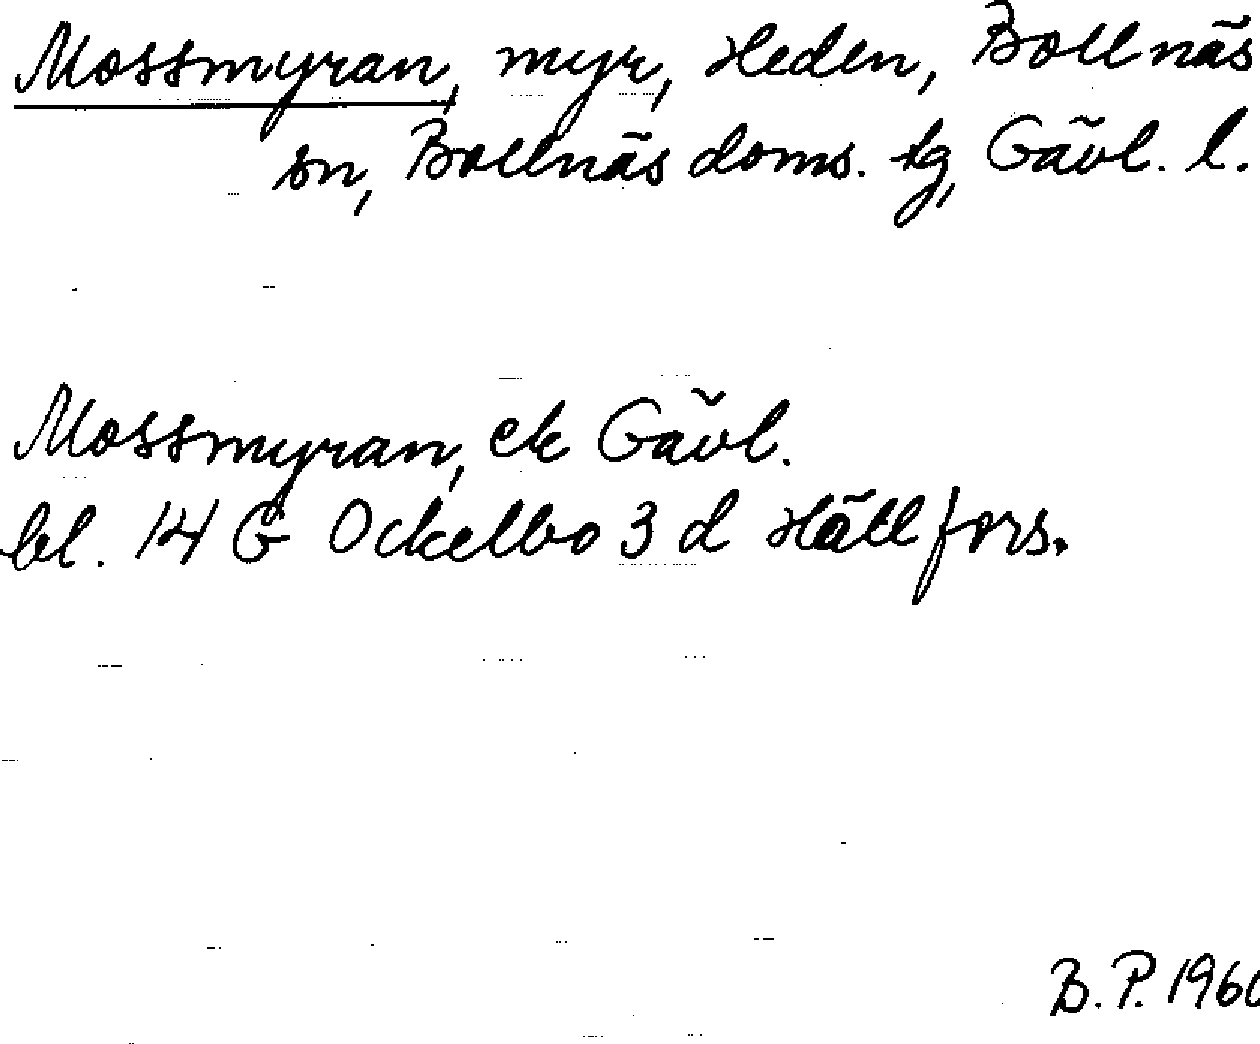 Mossmyran, myr, Heden, Bollnäs
sn, Bollnäs doms. tg, Gävl. l.
Mossmyran, ek Gävl.
bl. 14 G Ockelbo 3 d Hällfors.
B.P. 1960